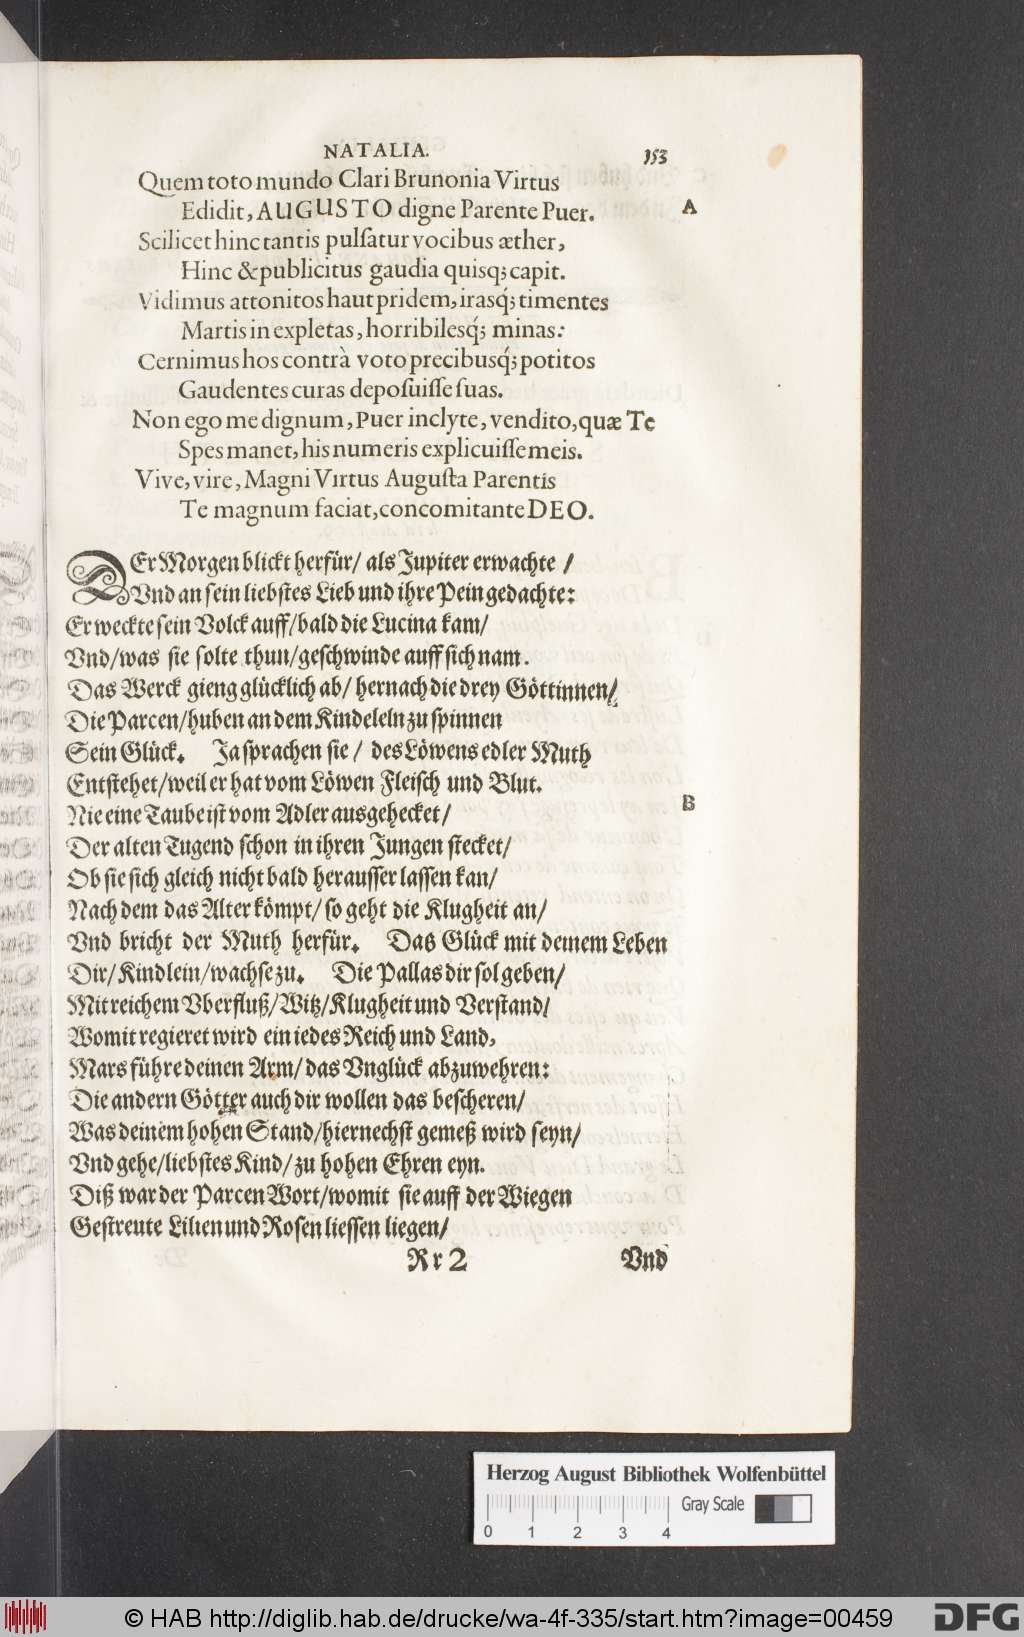 NATALIA. 153
Quem toto mundo Clari Brunonia Virtus
Edidit, AUGUSTO digne Parente Puer. A
Scilicet hinc tantis pulſatur vocibus æther,
Hinc & publicitus gaudia quisq; capit.
Vidimus attonitos haut pridem, irasq́; timentes
Martis in expletas, horribilesq́; minas:
Cernimus hos contrà voto precibusq́; potitos
Gaudentes curas depoſuiſſe ſuas.
Non ego me dignum, Puer inclyte, vendito, quæ Te
Spes manet, his numeris explicuiſſe meis.
Vive, vire, Magni Virtus Auguſta Parentis
Te magnum faciat, concomitante DEO.
DEr Morgen blickt herfür/ als Jupiter erwachte /
Vnd an ſein liebſtes Lieb und ihre Pein gedachte:
Er weckte ſein Volck auff/ bald die Lucina kam/
Vnd/ was ſie ſolte thun/ geſchwinde auff ſich nam.
Das Werck gieng glücklich ab/ hernach die drey Göttinnen/
Die Parcen/ huben an dem Kindelein zu ſpinnen
Sein Glück. Ja ſprachen ſie / des Löwens edler Muth
Entſtehet/ weil er hat vom Löwen Fleiſch und Blut.
Nie eine Taube iſt vom Adler ausgehecket/ B
Der alten Tugend ſchon in ihren Jungen ſtecket/
Ob ſie ſich gleich nicht bald herauſſer laſſen kan/
Nach dem das Alter kömpt/ ſo geht die Klugheit an/
Vnd bricht der Muth herfür. Das Glück mit deinem Leben
Dir/ Kindlein/ wachſe zu. Die Pallas dir ſol geben/
Mit reichem Vberfluß/ Witz/ Klugheit und Verſtand/
Womit regieret wird ein iedes Reich und Land,
Mars führe deinen Arm/ das Vnglück abzuwehren:
Die andern Götter auch dir wollen das beſcheren/
Was deinem hohen Stand/ hiernechſt gemeß wird ſeyn/
Vnd gehe/ liebſtes Kind/ zu hohen Ehren eyn.
Diß war der Parcen Wort/ womit ſie auff der Wiegen
Geſtreute Lilien und Roſen lieſſen liegen/
Rr 2 Vnd
Herzog August Bibliothek Wolfenbüttel
Gray Scale
0 1 2 3 4
© HAB http://diglib.hab.de/drucke/wa-4f-335/start.htm?image=00459
DFG